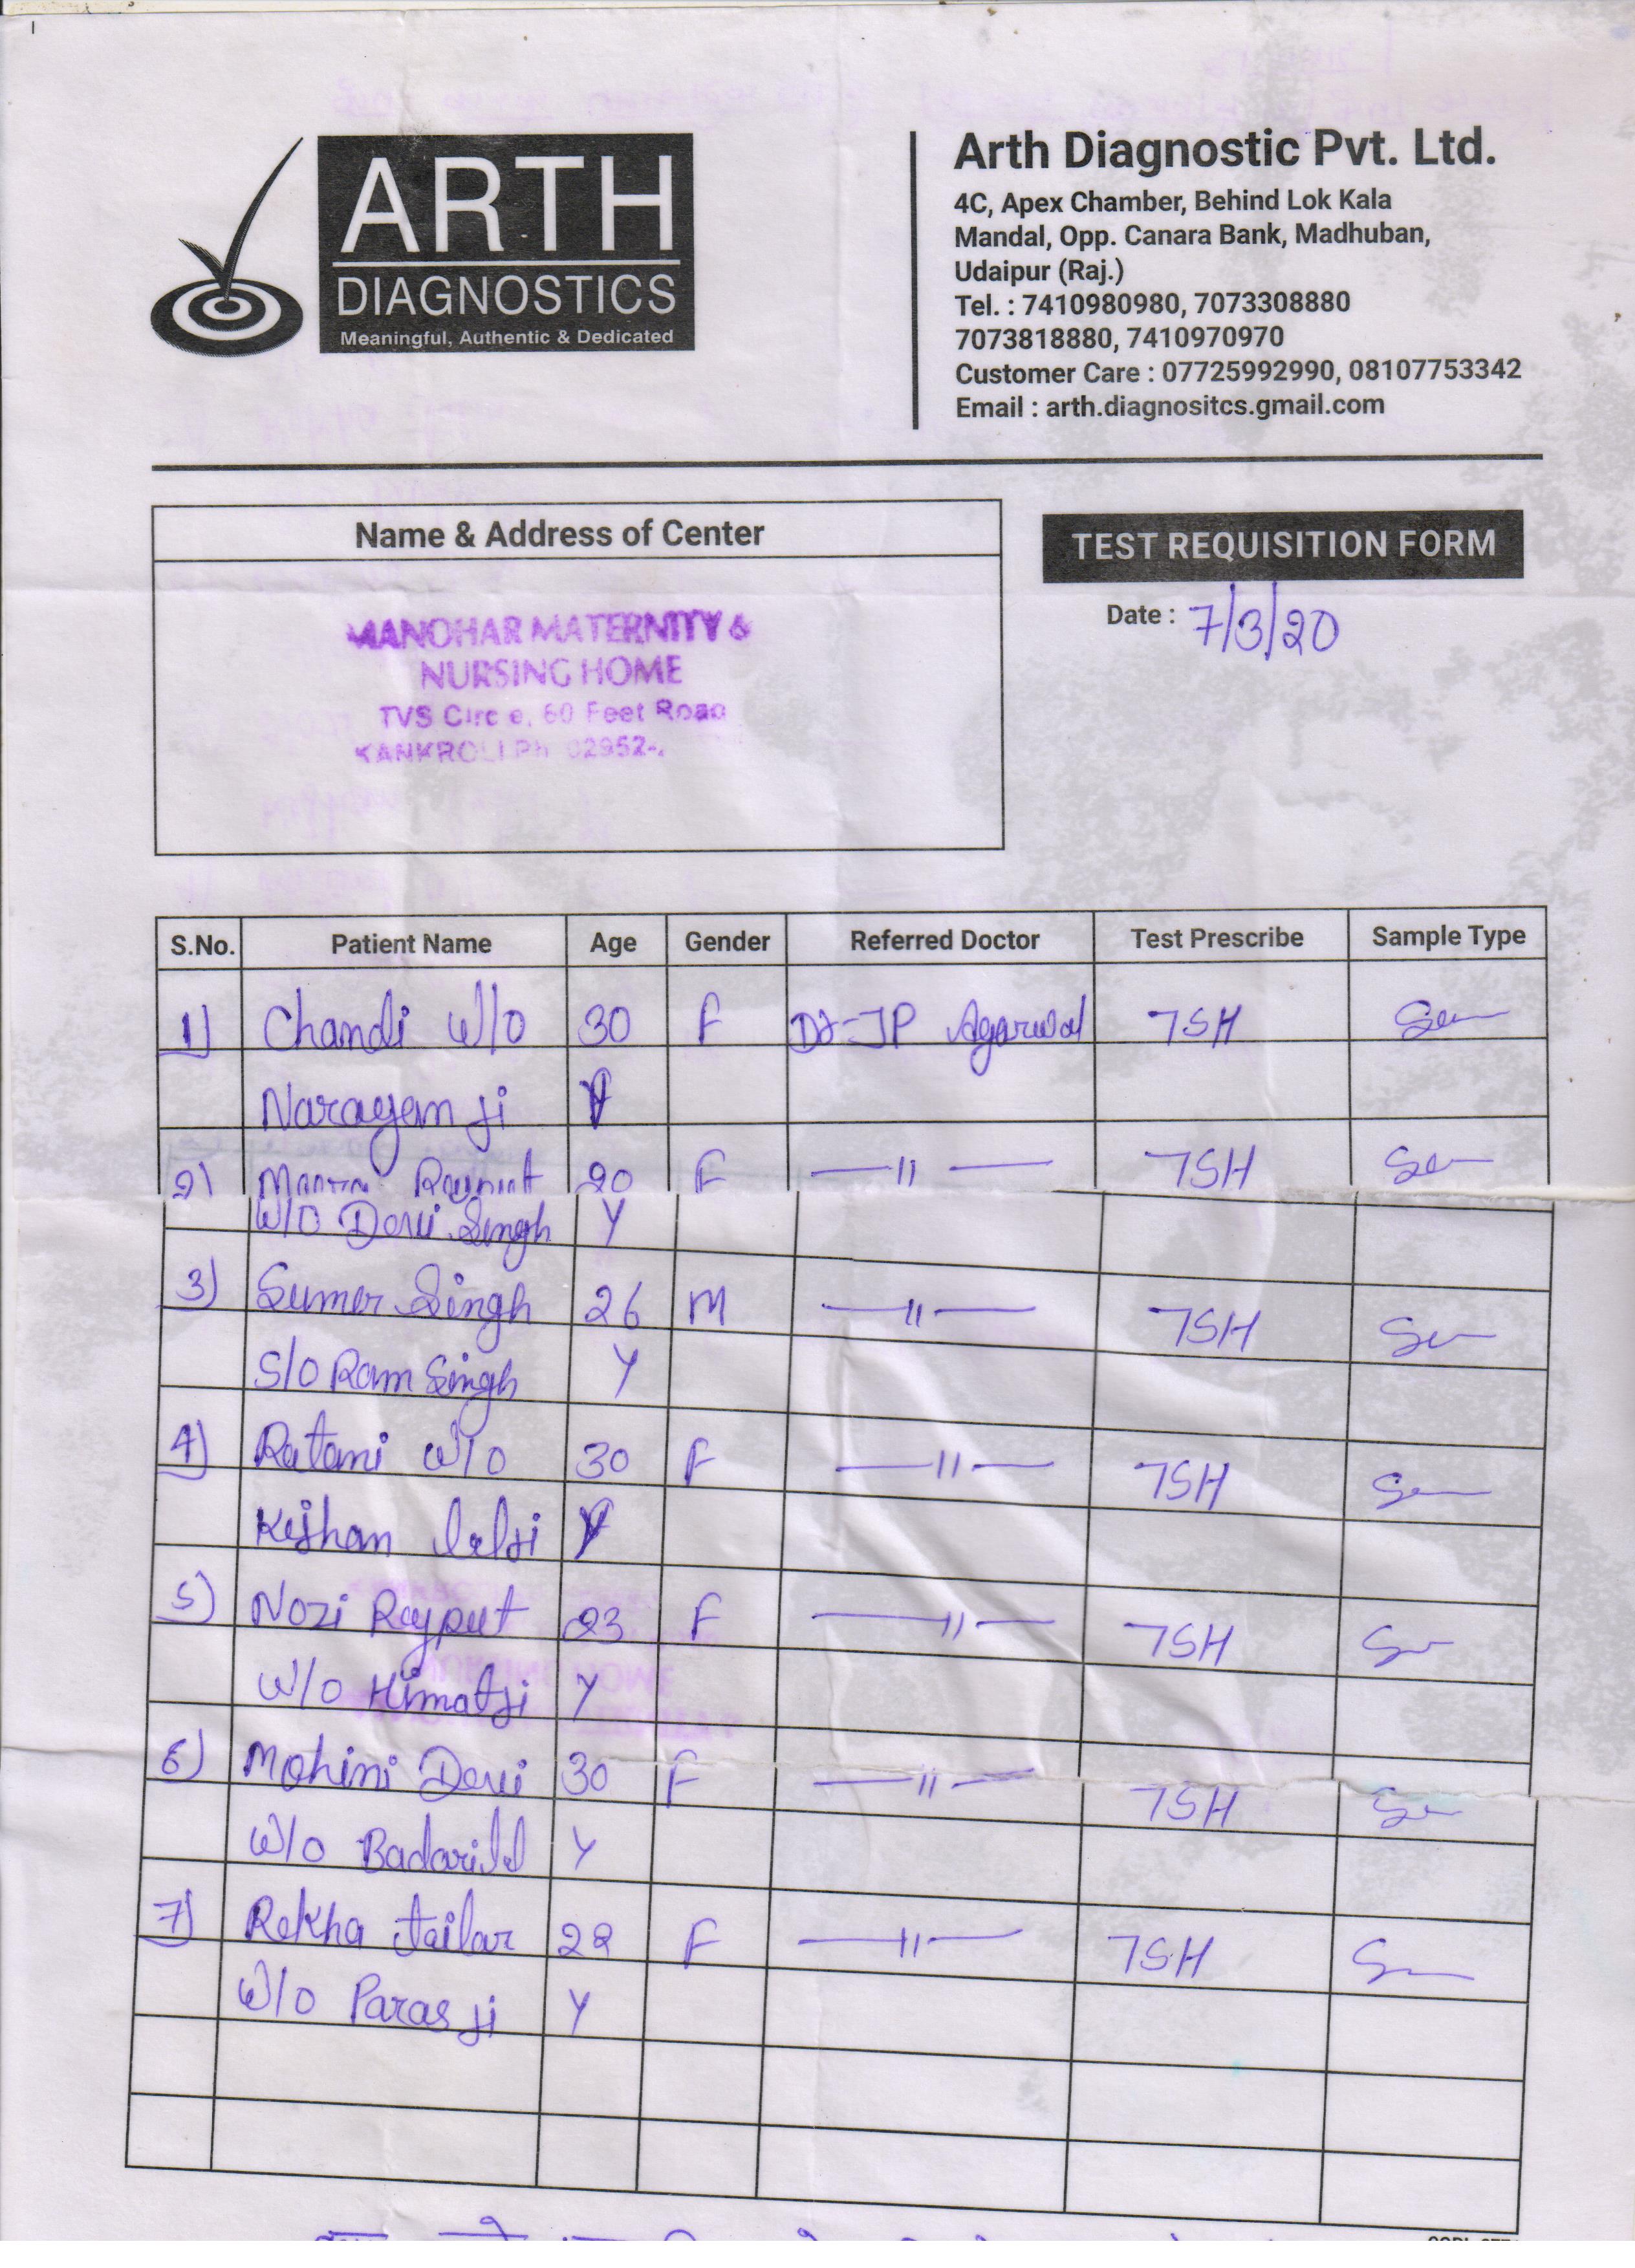 ARTH
DIAGNOSTICS
Meaningful, Authentic & Dedicated
Arth Diagnostic Pvt. Ltd.
4C, Apex Chamber, Behind Lok Kala
Mandal, Opp. Canara Bank, Madhuban,
Udaipur (Raj.)
Tel. : 7410980980, 7073308880
7073818880, 7410970970
Customer Care : 07725992990, 08107753342
Email : arth.diagnositcs.gmail.com
Name & Address of Center
TEST REQUISITION FORM
Date : 7/3/20
MANOHAR MATERNITY &
NURSING HOME
TVS Circ e, 60 Feet Road
KANKROLI Ph 02952-
S.No. Patient Name Age Gender Referred Doctor Test Prescribe Sample Type
1) Chandi W/o 30 F Dr JP Agarwal TSH
Narayan ji Y
2) Rajput 20 F —11— TSH
W/O Devi Singh Y
3) Sumer Singh 26 M —11— TSH
S/O Ram Singh Y
4) Ratani W/o 30 F —11— TSH
Kishan lalji Y
5) Nozi Rajput 23 F —11— TSH
W/o Himatji Y
6) Mohini Devi 30 F —11— TSH
W/o Badarilal Y
7) Rekha tailar 22 F —11— TSH
W/o Paras ji Y